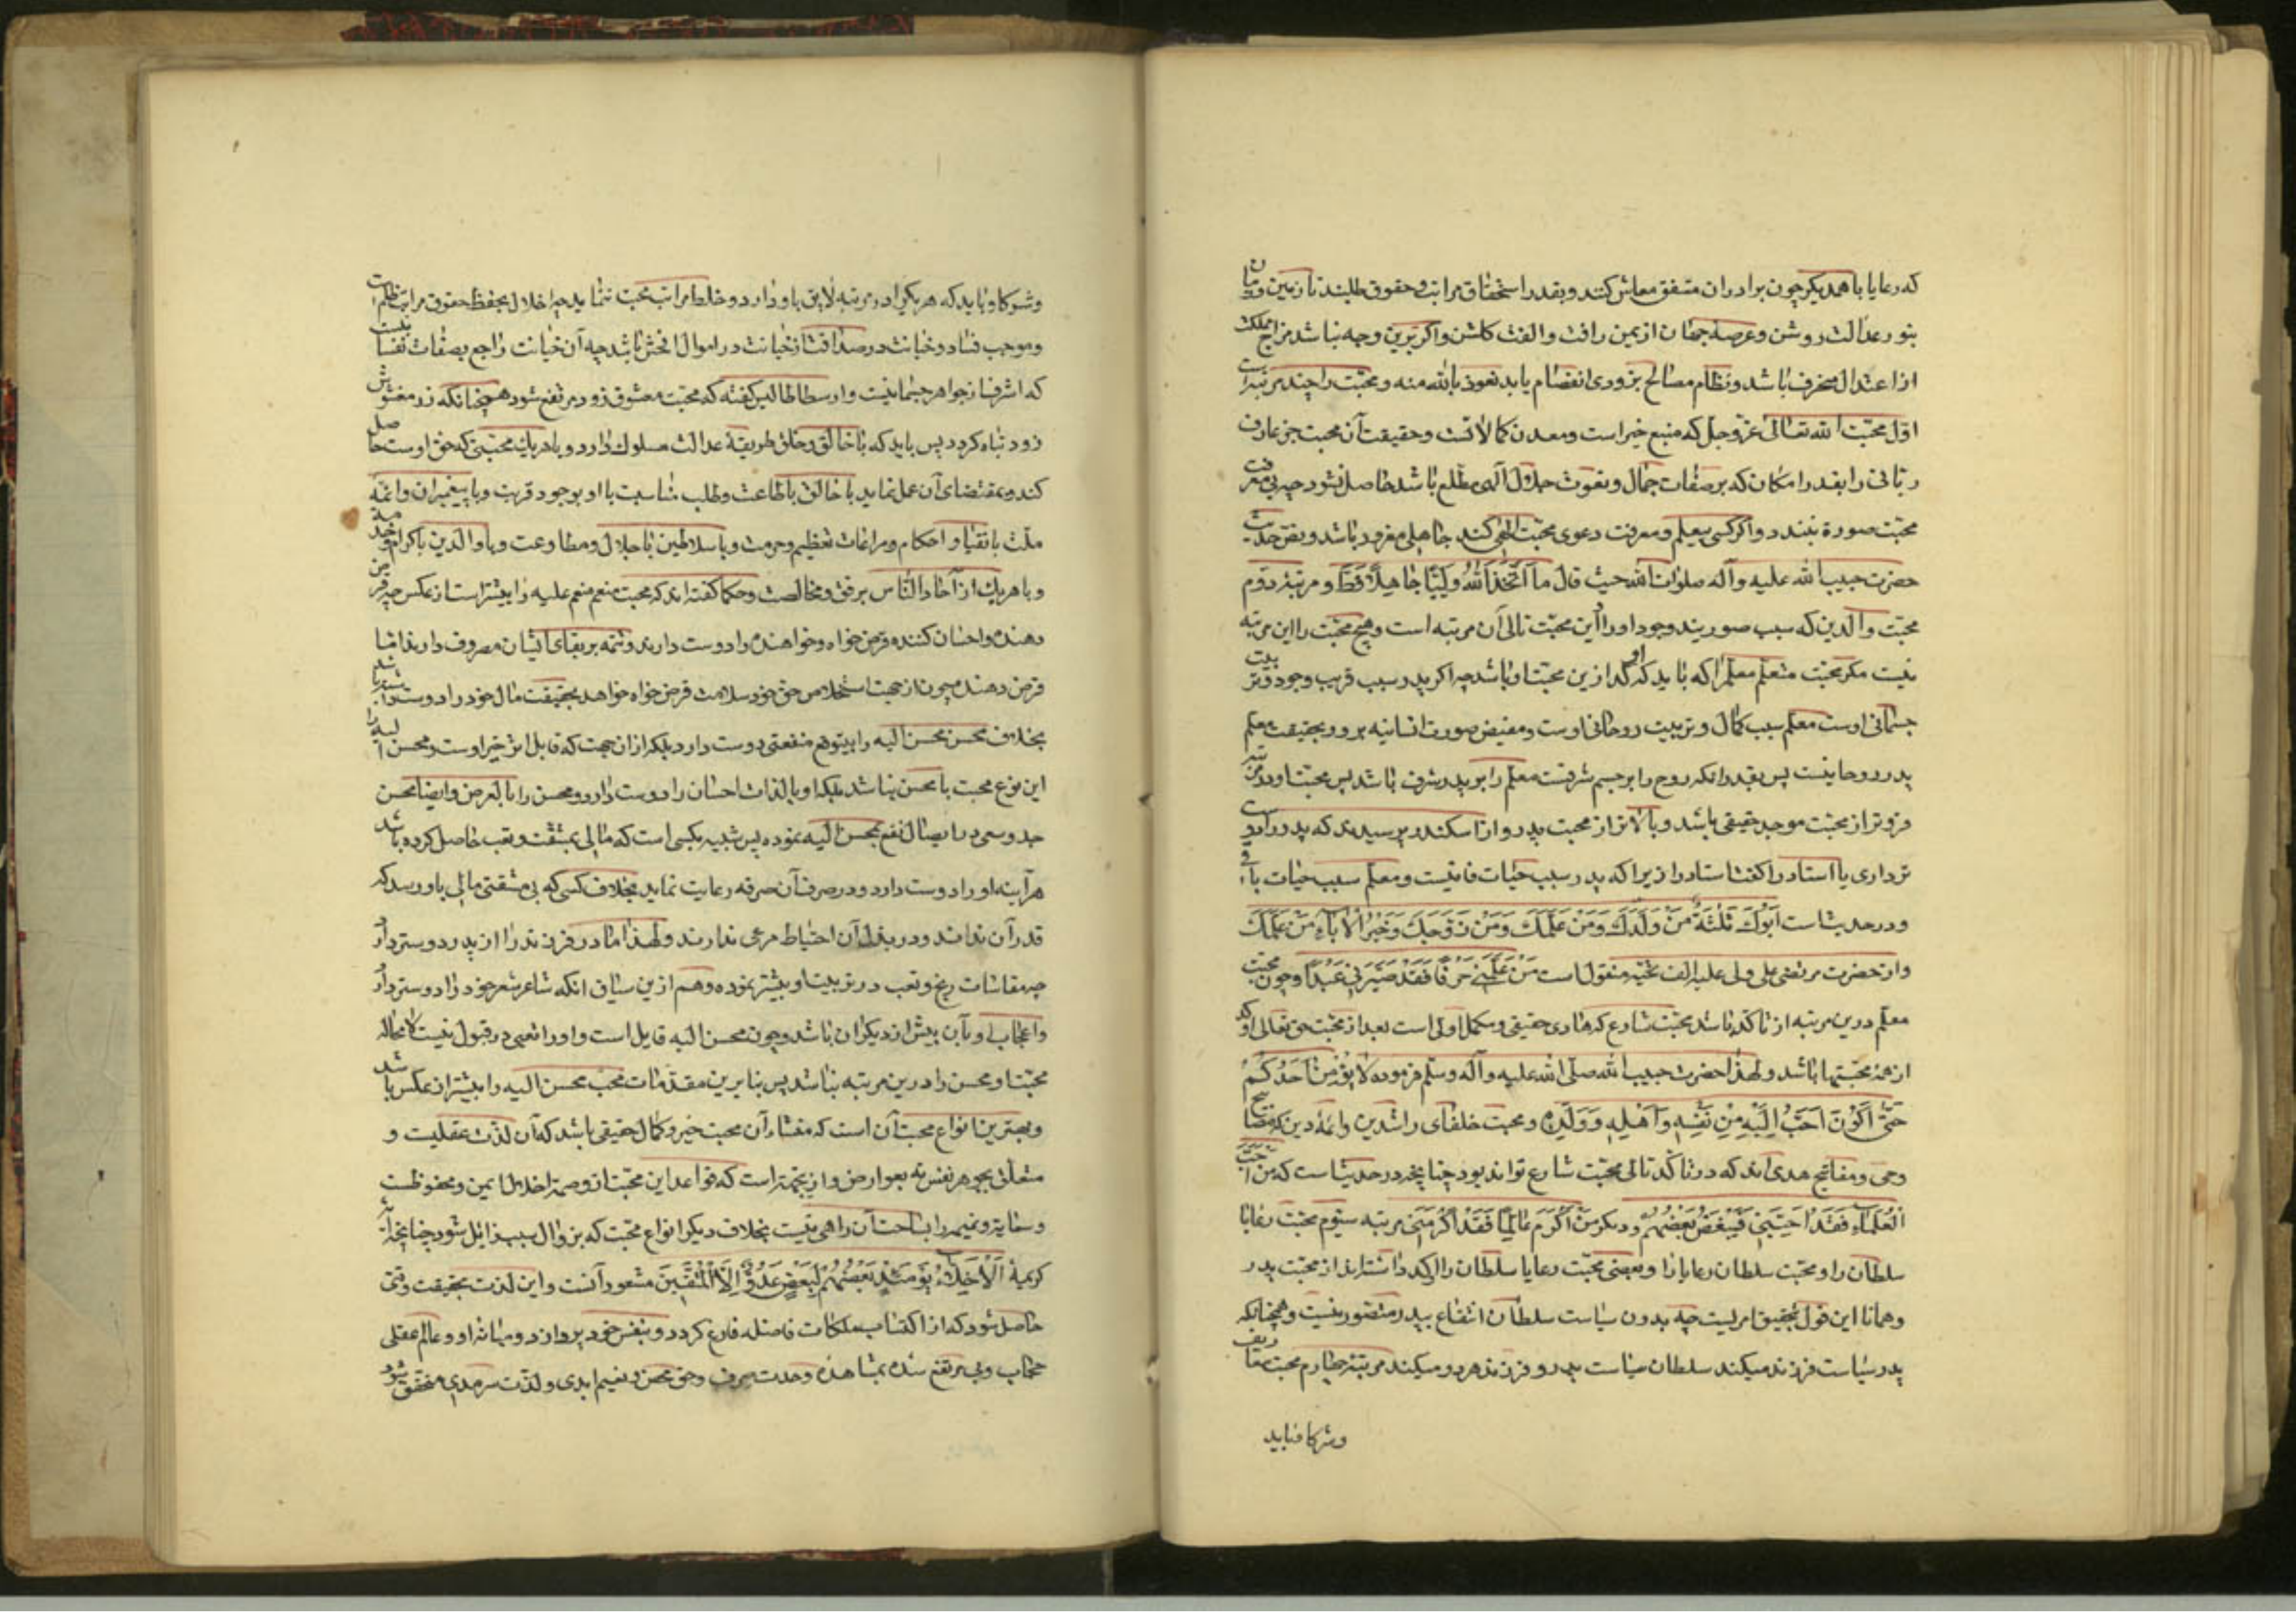 که رعایا با همدیگر چون برادران متفق معاش کنند و بقدر استحقاق مراتب و حقوق طلبند تا زمین و زمان
بنور عدالت روشن و عرصهٔ جهان از یمن رافت و الفت کلشن و اکر برین وجه نباشد مزاج مملکت
از اعتدال منحرف باشد و نظام مصالح بزودی انفصام یابد نعوذ بالله منه و محبّت را چند مرتبه است
اوّل محبّت الله تعالی عزّ و جلّ که منبع خیر است و معدن کمالاتست و حقیقت آن محبت جز عارف
ربانی را بقدر امکان که بر صفات جمال و نعوت جلال الهی مطّلع باشد حاصل نشود چه بی معرفت
محبّت صورة نبندد و اکر کسی بی علم و معرفت دعوی محبّت الهی کند جاهلی مغرور باشد و بنص حدیث
حضرت حبیب الله علیه و آله صلوات الله حیث قال ما اتّخذ الله ولیّا جاهلا قطّ و مرتبهٔ دوم
محبّت والدین که سبب صوریند وجود او را و این محبّت تالی آن مرتبه است و هیچ محبّت را این مرتبه
نیست مکر محبّت متعلم معلم را که باید که او کدازین محبّت او باشد چه اکر پدر سبب قریب وجود و تربیت
جسمانی اوست معلم سبب کمال و تربیت روحانی اوست و مفیض صورت انسانیه بر و و بحقیقت معلم
پدر روحانیست پس بقدر انکه روح را بر جسم شرفست معلم را بر پدر شرف باشد پس محبّت او در مرتبه
فروتر از محبّت موجد حقیقی باشد و بالاتر از محبت پدر و از اسکندر پرسیدند که پدر را دوست
تر داری یا استاد را کفت استاد را زیرا که پدر سبب حیات فانیست و معلم سبب حیات باقی
و در حدیث است ابوک ثلثة من ولدک و من علّمک و من زوّجک و خیر الآباء من علّمک
و از حضرت مرتضی علی ولی علیه الف تحیّه منقول است من علّمنی حرفا فقد صیّرنی عبدا و چون محبّت
معلم درین مرتبه از تاکد باشد محبّت شارع که هادی حقیقی و مکمل اولی است بعد از محبّت حق تعالی اوکد
از همه محبّتها باشد و لهذا حضرت حبیب الله صلی الله علیه و آله و سلّم فرموده لا یؤمن احدکم
حتّی اکون احبّ الیه من نفسه و اهله و ولده و محبت خلفای راشدین و ائمهٔ دین که مصابیح
وحی و مفاتیح هدی اند که در تاکّد تالی محبّت شارع تواند بود چنانچه در حدیث است که من احبّ
العلماء فقد احبّنی و دیکر من اکرم عالما فقد اکرمنی مرتبه سیّوم محبّت رعایا
سلطان را و محبّت سلطان رعایا را و بعضی محبّت رعایا سلطان را اوکد داشته‌اند از محبّت پدر
و همانا این قول بتحقیق اقربست چه بدون سیاست سلطان انتفاع بپدر متصوّر نیست و همچنانکه
پدر سیاست فرزند میکند سلطان سیاست پدر و فرزند هر دو میکند مرتبهٔ چهارم محبّت معاریف
و شرکا و باید
و شرکا و باید که هر یکی را در مرتبه لایق باو دارد و خلط مراتب محبّت ننماید چه اخلال بحفظ حقوق مراتب ظلم است
و موجب فساد و خیانت در صداقت از خیانت در اموال افحش باشد چه آن خیانت راجع بصفات نفس است
که اشرف از جواهر جسمانیست و ارسطاطالیس کفته که محبّت مغشوق زود مرتفع شود همچنانکه زر مغشوش
زود تباه کردد پس باید که با خالق و خلق طریقهٔ عدالت مسلوک دارد و با هر یک محبّتی که حق اوست حاصل
کند و بمقتضای آن عمل نماید با خالق باطاعت و طلب مناسبت با او بوجود قربت و با پیغمبران و ائمّه
ملّت بانقیاد احکام و مراعات تعظیم و حرمت و با سلاطین باجلال و مطاوعت و با والدین باکرام و خدمت
و با هر یک از آحاد الناس برفق و مخالصت و حکما کفته‌اند که محبّت منعم منعم علیه را بیشتر است از عکس چه قرض
دهنده و احسان کننده قرض خواه و خواهنده را دوست دارند و همّه بر بقای ایشان مصروف دارند امّا
قرض دهنده چون از جهت استخلاص حق خود سلامت قرض خواه خواهد بحقیقت مال خود را دوست داشته باشد
بخلاف محسن محسن الیه را بی توهم منفعتی دوست دارد بلکه از ان جهت که قابل اثر خیر اوست و محسن الیه را
این نوع محبت با محسن نباشد بلکه او بالذات احسان را دوست دارد و محسن را بالعرض و ایضا محسن
جد و سعی در ایصال نفع بمحسن الیه نموده پس شبیه بکسی است که مالی بمشقت و تعب حاصل کرده باشد
هر آینه او را دوست دارد و در صرف آن صرفه رعایت نماید بخلاف کسی که بی مشقتی مالی باو رسد که
قدر آن نداند و در بذل آن احتیاط مرعی ندارند و لهذا مادر فرزند را از پدر دوستر دارد
چه مقاسات رنج و تعب در تربیت او بیشتر نموده و هم ازین سیاق انکه شاعر شعر خود را دوستر دارد
و اعجاب او بآن بیش از دیکران باشد و چون محسن الیه قابل است و او را تعبی در قبول نیست لا محاله
محبّت او محسن را درین مرتبه نباشد پس بنا برین مقدّمات محبّ محسن الیه را بیشتر از عکس باشد
و بهترین انواع محبت آن است که منشاء آن محبت خیر و کمال حقیقی باشد که آن لذّت عقلیت و
متعلّق بجوهر نفس نه بعوارض و ازینجهة است که قواعد این محبّت از وصمت اخلال ایمن و محفوظست
و سعایة و نمیمه را بساحت آن راهی نیست بخلاف دیکر انواع محبّت که بزوال سبب زایل شود چنانچه آیه
کریمهٔ الاخلّاء یومئذ بعضهم لبعض عدوّ الّا المتّقین مشعر بآنست و این لذّت بحقیقت وقتی
حاصل شود که از اکتساب ملکات فاضله فارغ کردد و بنفس خود پردازد و میانه او و عالم عقلی
حجاب وی مرتفع شده بمشاهده وحدت صرف و حق محض و نعیم ابدی و لذّت سرمدی متحقق شود